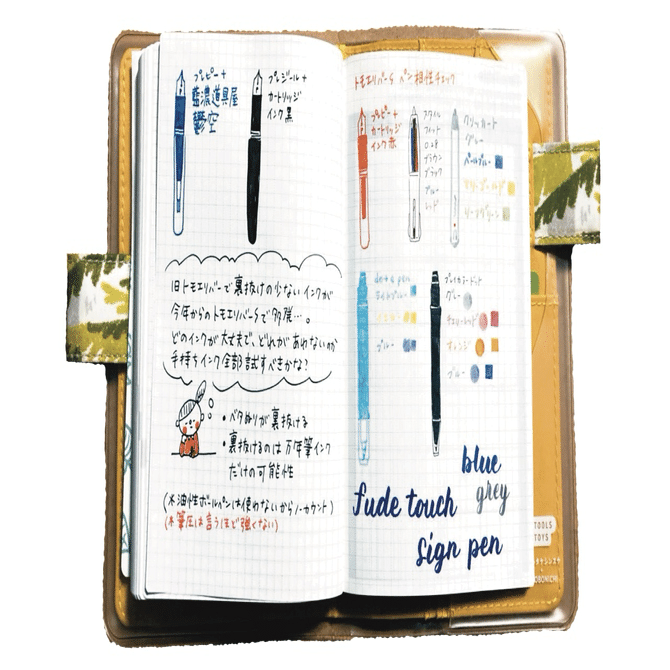 プレピー+
藍濃道具屋
鬱空
プレジール+
カートリッジ
インク黒
旧トモエリバーで裏抜けの少ないインクが
今年からのトモエリバーSで多発…。
どのインクが大丈夫で、どれがあれないのか
手持ちインク全部試すべきかな?
・ベタぬりが裏抜ける
・裏抜けるのは万年筆インク
だけの可能性
(※油性ボールペンは使わないからノーカウント)
(※筆圧は言うほど強くない)
トモエリバーS ペン相性チェック
プレピー+
カートリッジ
インク赤
スタイル
フィット
0.28
ブラウン
ブラック
ブルー
レッド
クリッカート
グレー
ペールブルー
マリーゴールド
リーフグリーン
dot e pen
ライトブルー
イエロー
ブルー
プレイカラードット
グレー
チェリーレッド
オレンジ
ブルー
blue
grey
fude touch
sign pen
TOOLS
TOYS
HOBONICHI